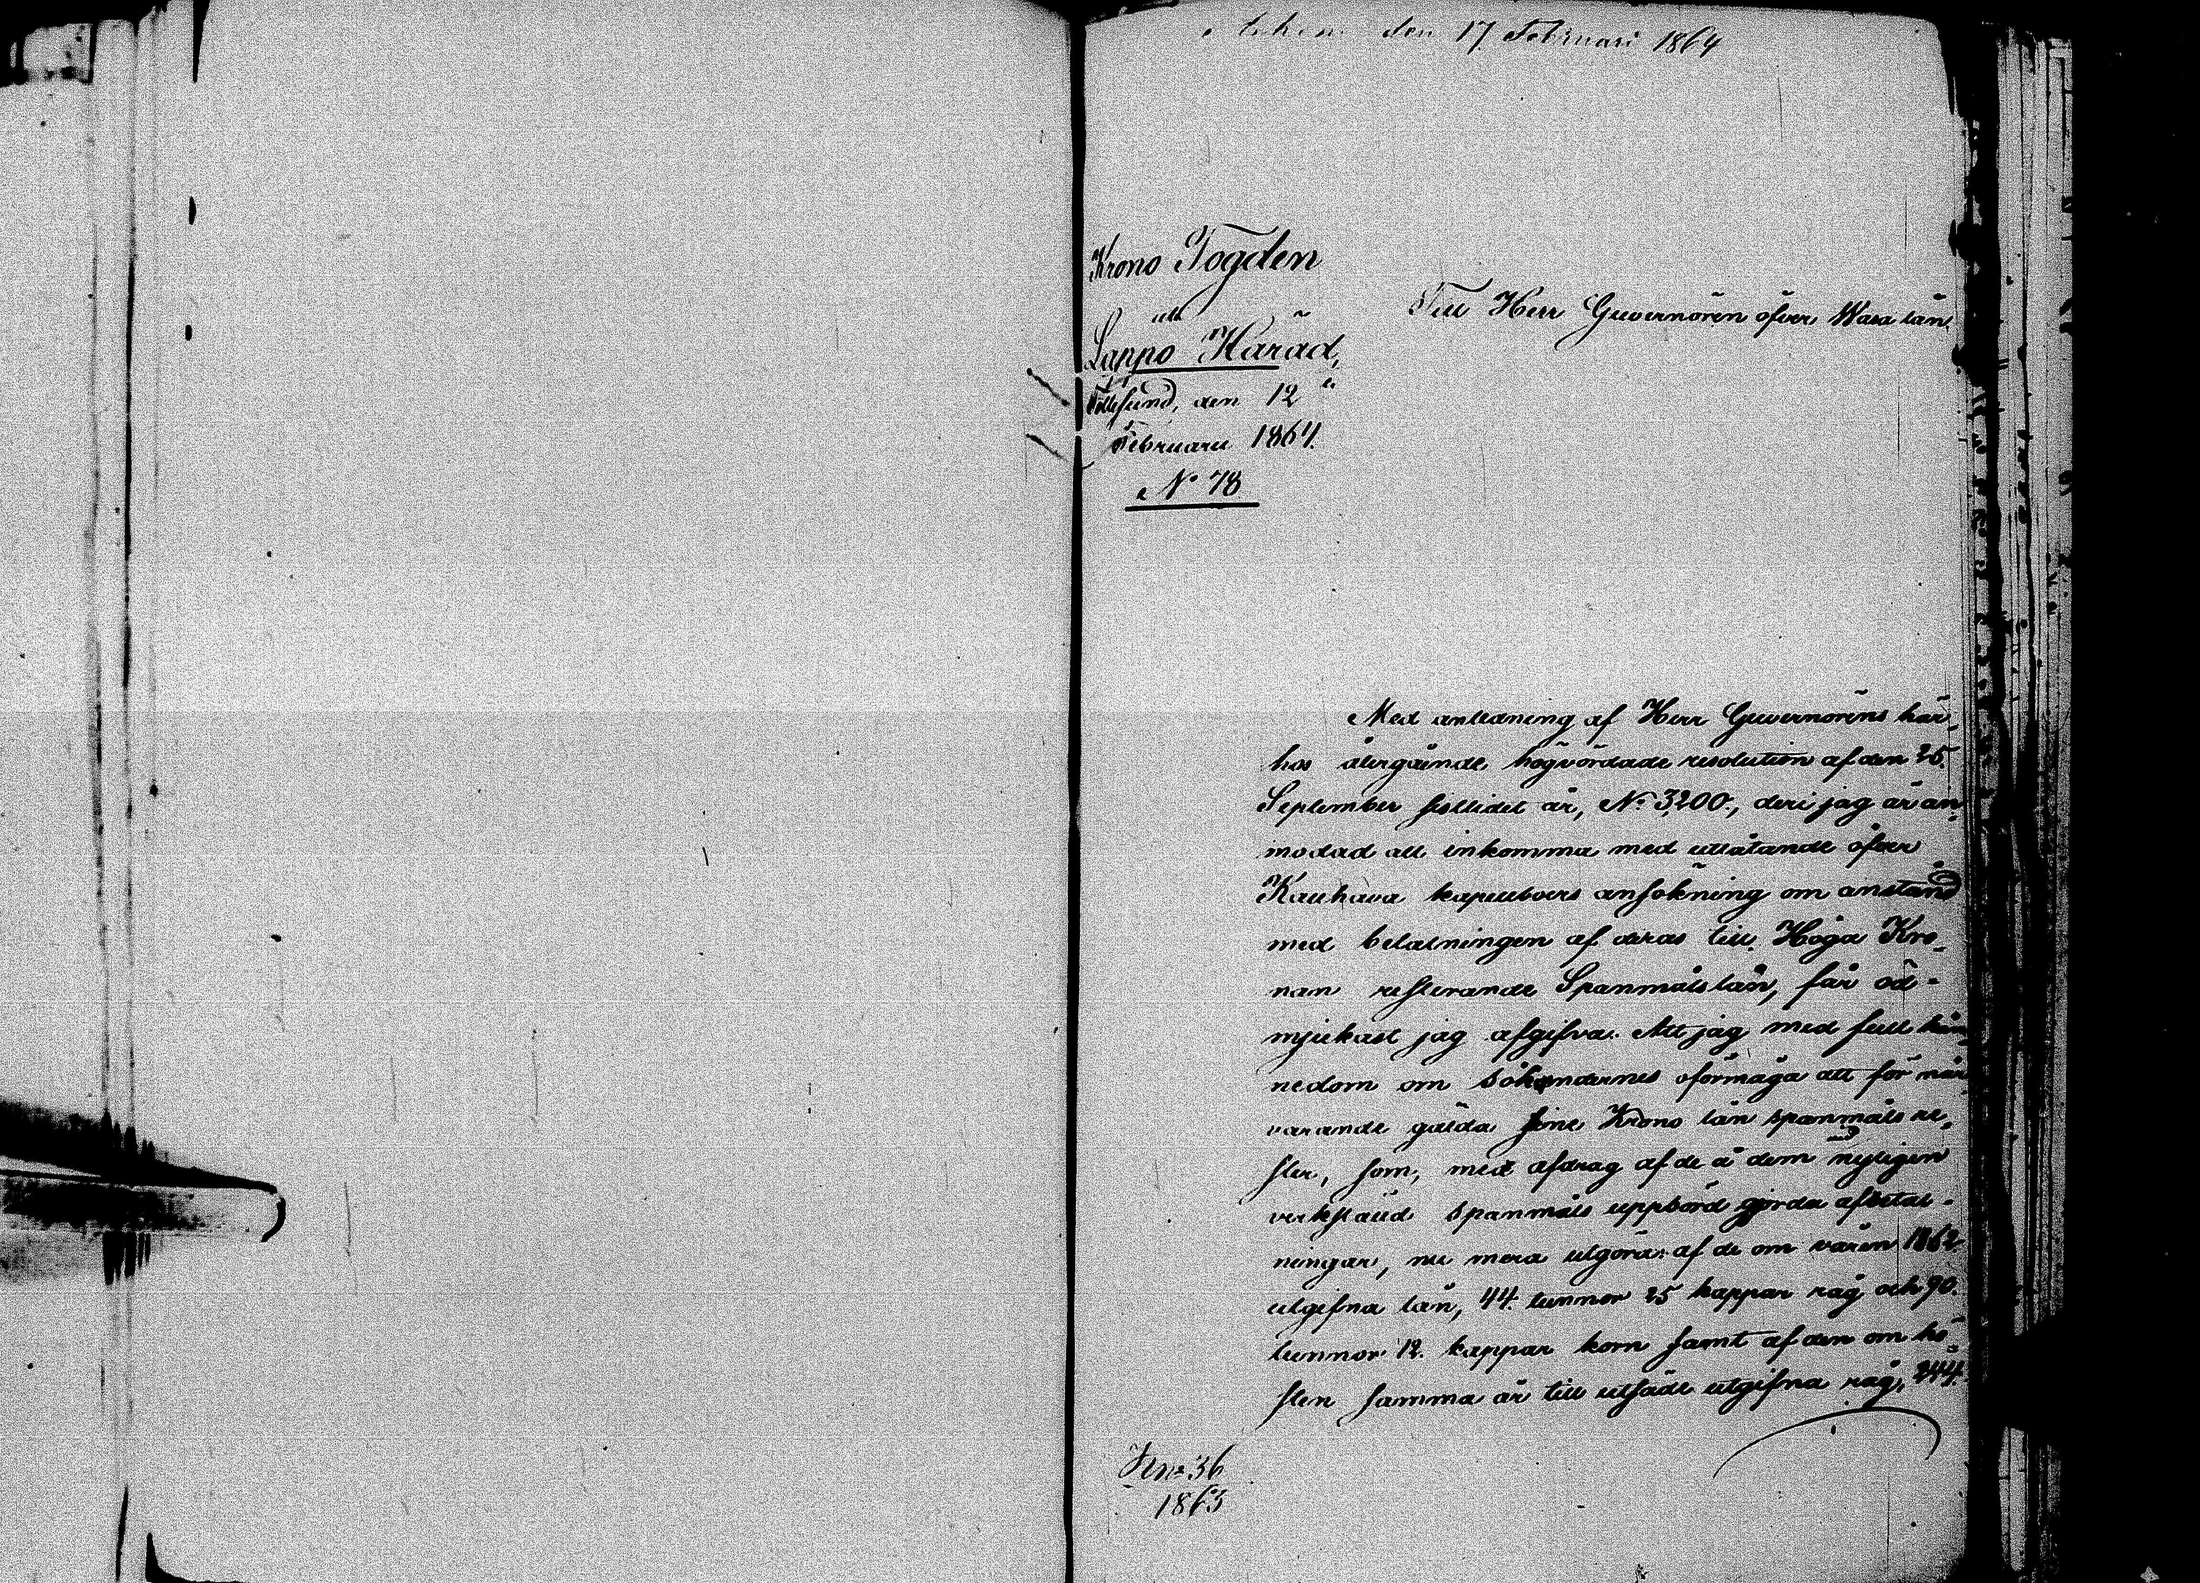 Ankom den 17 Februari 1864
Krono Fogden
uti
Lappo Härad,
den 12
Februarii 1864.
No 78
Till Herr Guvernören öfver Wasa län.
Med anledning af Herr Guvernörens här-
hos återgående högvördade resolution af den 25.
September sistlidet år, No 3200., deri jag är an-
modad att inkomma med utlåtande öfver
Kauhava kapellboers ansökning om anstånd
med betalningen af deras till Höga Kro-
nan resterande Spanmåls lån, får öd-
mjukast jag afgifva: Att jag med full kän-
nedom om sökandernes oförmåga att för när-
varande gälda sine Krono låns spanmåls re-
ster, som, med afdrag af de å dem nyligen
verkstäld spanmåls uppbörd gjorda afbetal-
ningar, nu mera utgöra: af de om våren 1862
utgifna lån, 44. tunnor 25 kappar råg och 90.
tunnor 12. kappar korn samt af den om hö-
sten samma år till utsäde utgifna råg, 244.
No 36
1863